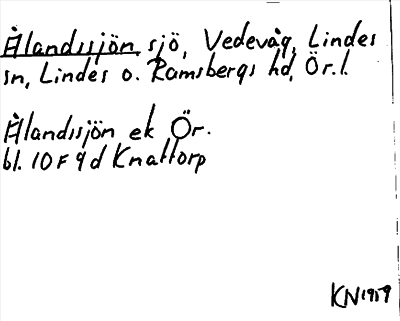 Ålandssjön sjö, Vedevåg, Lindes
sn, Lindes o. Ramsbergs hd, Ör.l.
Ålandssjön ek Ör.
bl. 10F 9d Knattorp
KN 1959